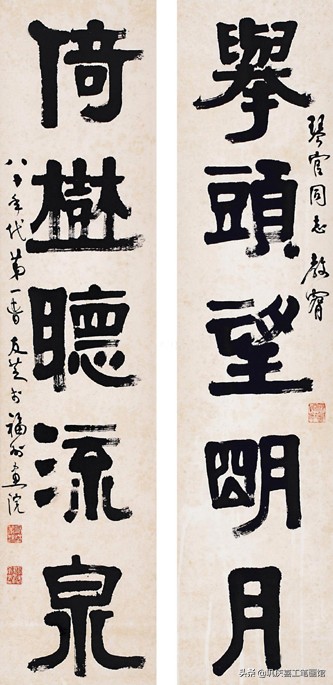 琴官同志教
舉頭望朙月
倚樹聽流泉
八十年代第一春友芝福州畫院
头条